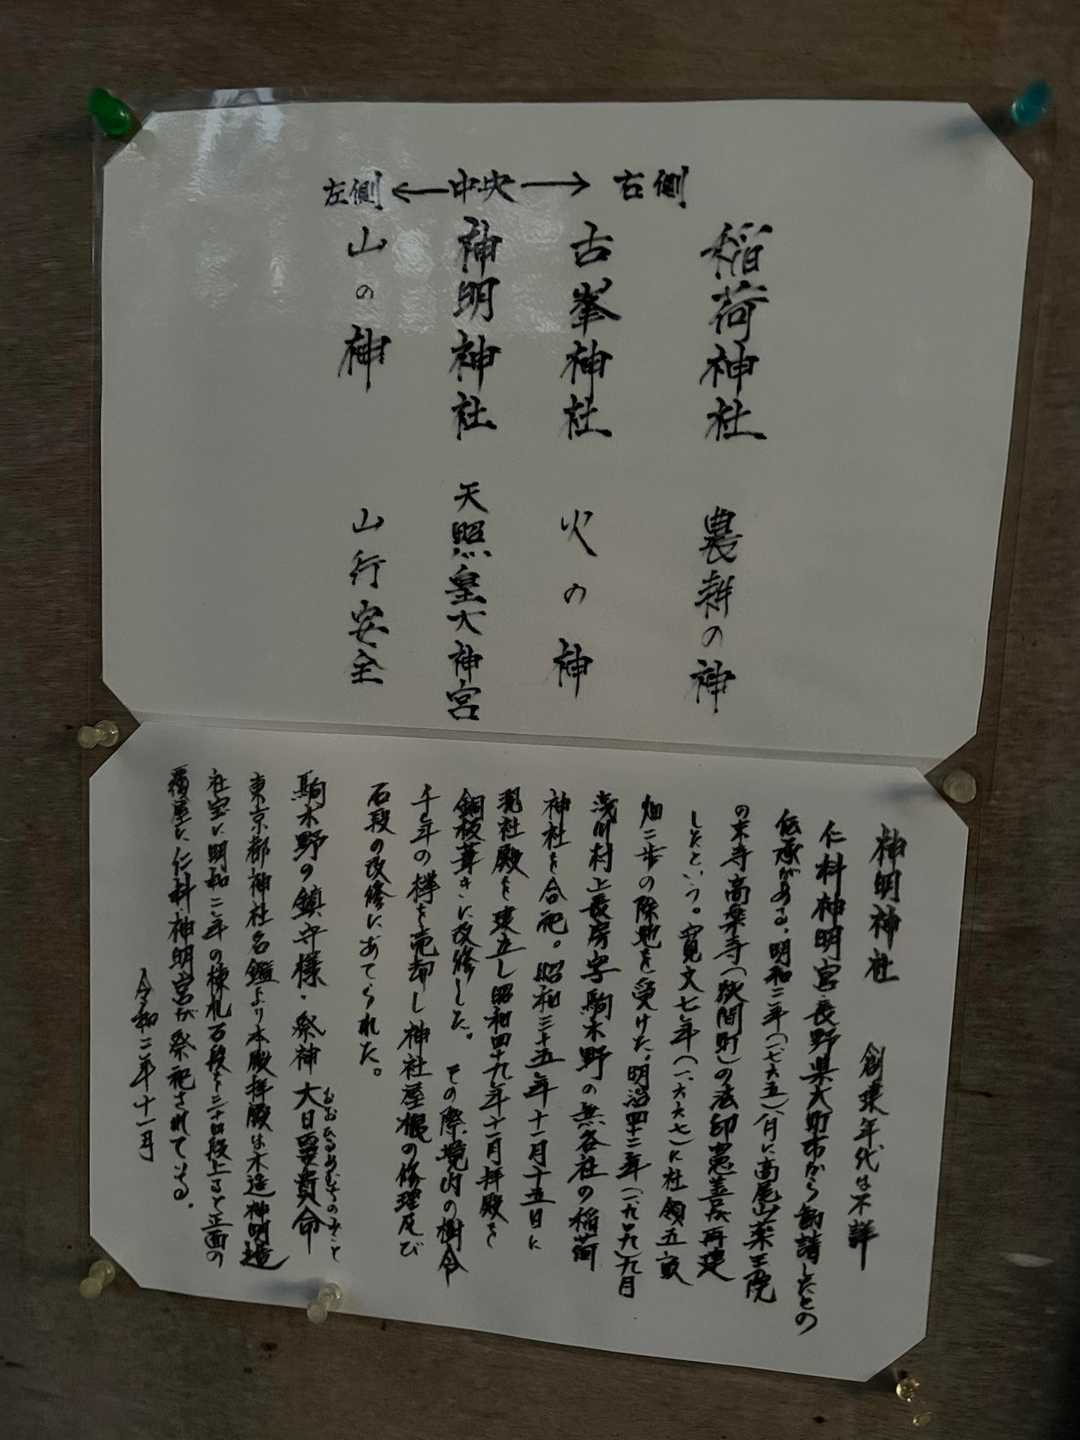 左側←中央→右側
稲荷神社 農耕の神
古峯神社 火の神
神明神社 天照皇大神宮
山の神 山行安全
神明神社 創建年代は不詳
仁科神明宮・長野県大町市から勧請したとの
伝承がある。明和二年(一七六五)八月に高尾山薬王院
の末寺高楽寺(狭間町)の法印憲善が再建
したという。寛文七年(一六六七)に社領五畝
畑二歩の除地を受けた。明治四十二年(一九〇九)九月
浅川村上長房字駒木野の無各社の稲荷
神社を合祀。昭和三十五年十一月十五日に
現社殿を建立し昭和四十九年十一月拝殿を
銅板葺きに改修した。その際境内の樹令
千年の欅を売却し神社屋根の修理及び
石段の改修にあてられた。
駒木野の鎮守様・祭神 大日孁貴命
おおひるめむちのみこと
東京都神社名鑑より本殿拝殿は木造神明造
社宝に明和二年の棟札石段を三十四段上ると正面の
覆屋に仁科神明宮が祭祀されている。
令和二年十一月